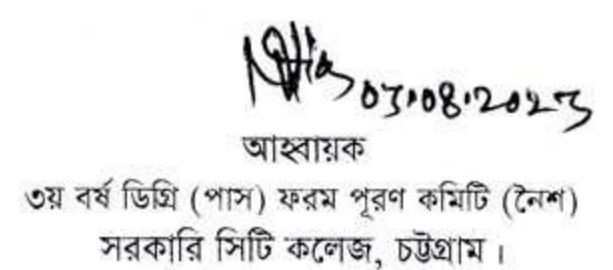 03.08.2023
আহ্বায়ক
৩য় বর্ষ ডিগ্রি (পাস) ফরম পূরণ কমিটি (নৈশ)
সরকারি সিটি কলেজ, চট্টগ্রাম।